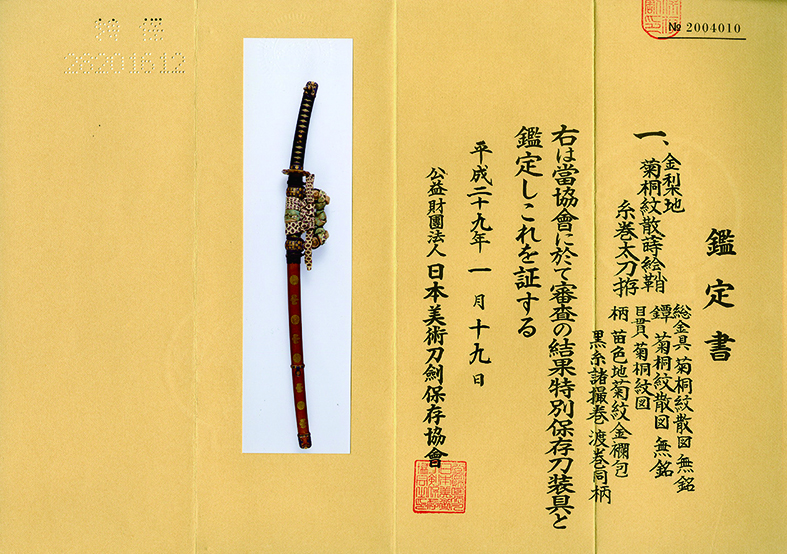 № 2004010
鑑定書
一、金梨地
菊桐紋散蒔絵鞘
糸巻太刀拵
総金具 菊桐紋散図 無銘
鐔 菊桐紋散図 無銘
目貫 菊桐紋図
柄 苗色地菊紋金襴包
黒糸諸撮巻 渡巻同柄
右は當協會に於て審査の結果特別保存刀装具と
鑑定しこれを証する
平成二十九年 一月 十九日
公益財團法人 日本美術刀劍保存協會
20201612